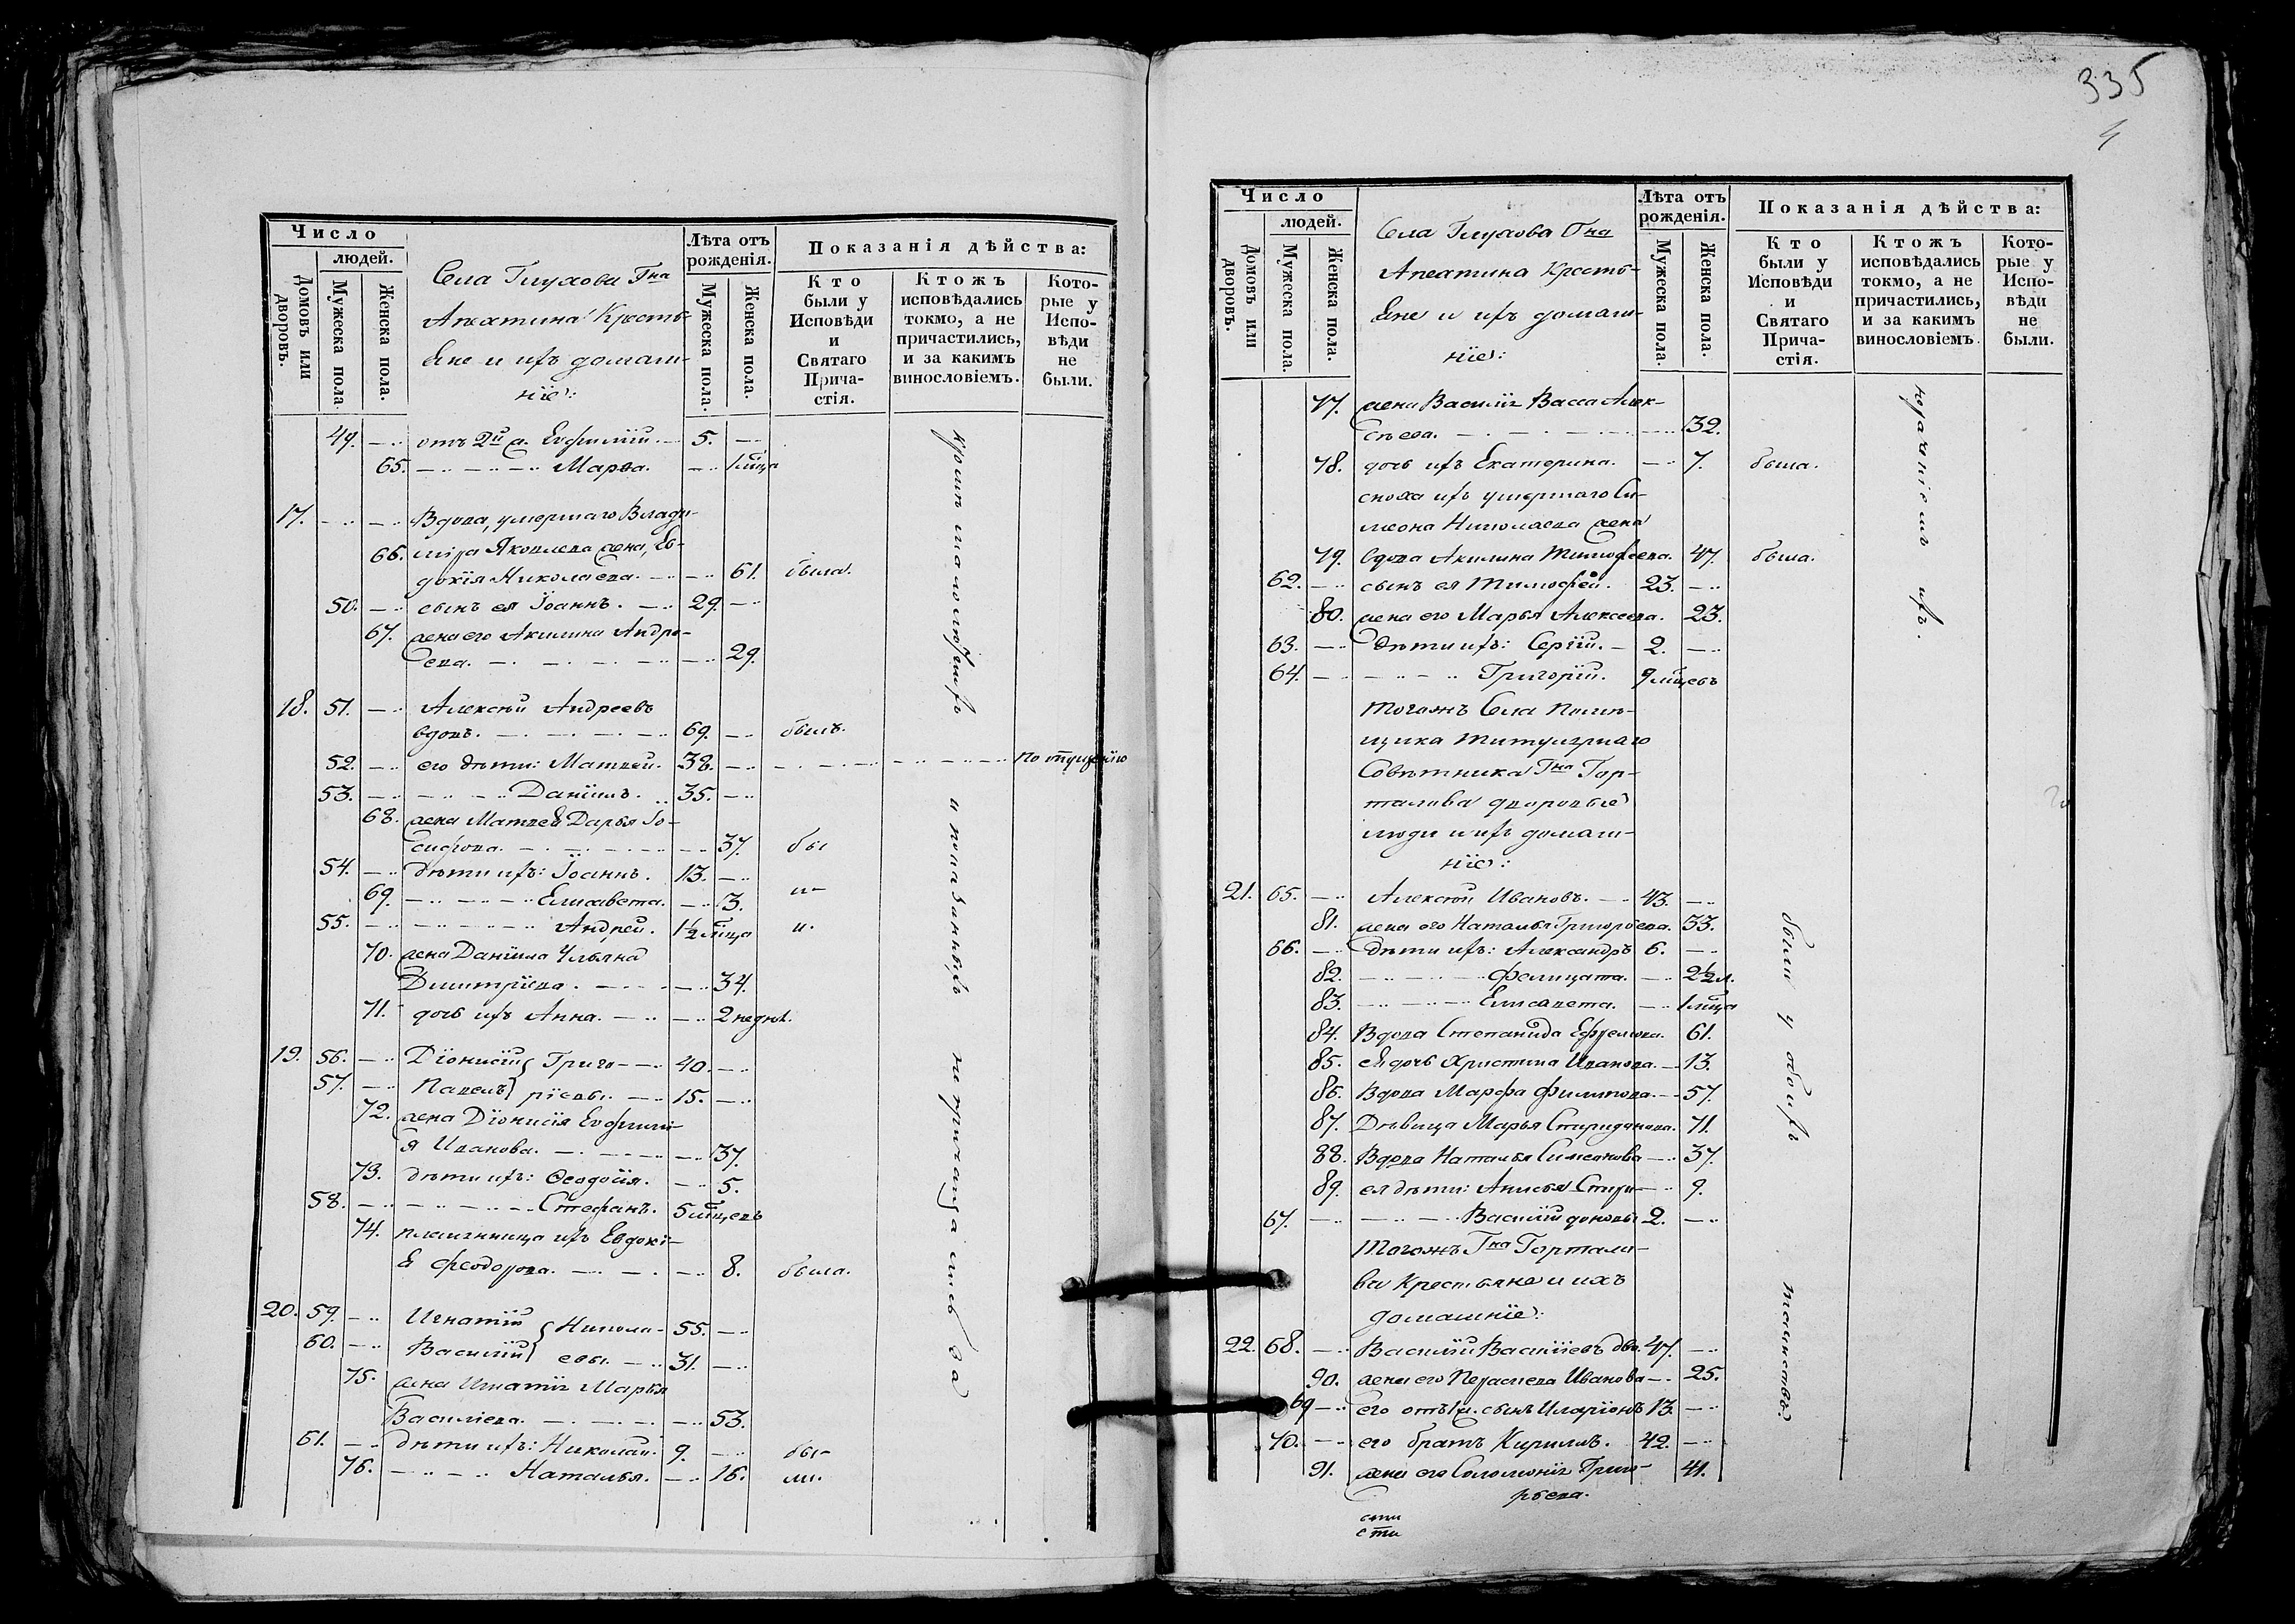 335
4
Число
людей.
Домовъ или дворовъ.
Мужеска пола.
Женска пола.
Села Глухова Гна
Апехтина Кресть-
яне и ихъ домаш-
ніе:
Лѣта отъ рожденія.
Мужеска пола.
Женска пола.
Показанія дѣйства:
Кто были у Исповѣди и Святаго Прича-стія.
Ктожъ исповѣдались токмо, а не причастились, и за какимъ винословіемъ.
Кото-рые у Испо-вѣди не были.
49. отъ 2й ж. Евфимій. 5.
65. Марѳа. 1 мца
17. Вдова, умершаго Влади-
66. міра Яковлева жена, Ев-
докія Николаева. 61. была.
50. сынъ ея Іоаннъ. 29.
67. жена его Акилина Андре-
ева. 29.
18. 51. Алексѣй Андреевъ
вдовъ. 69. былъ.
52. его дѣти: Матвей. 38. по отлученію
53. Даніилъ. 35.
68. жена Матвея Дарья Іо-
сифова. 37. бы
54. дѣти ихъ: Іоаннъ. 13.
69. Елисавета. 3.
55. Андрей. 1½ мца и.
70. жена Даніила Ульяна
Димитріева. 34.
71. дочь ихъ Анна. 2 недѣл.
19. 56. Діонисій} Григо- 40.
57. Павелъ} ріевы. 15.
72. жена Діонисія Евфими-
я Иванова. 37.
73. дѣти ихъ: Ѳеодосія. 5.
58. Стефанъ. 5 мцевъ
74. племянница ихъ Евдокі-
я Феодорова. 8. была.
20. 59. Игнатій} Никола- 55.
60. Василій} евы. 31.
75. жена Игнатія Марѳя
Василіева. 53.
61. дѣти ихъ: Николай. 9. бы-
76. Наталья. 16. ли.
кромѣ малолѣтнихъ и показанныхъ не причащались за
Число
людей.
Домовъ или дворовъ.
Мужеска пола.
Женска пола.
Села Глухова Гна
Апехтина Кресть-
яне и ихъ домаш-
ніе:
Лѣта отъ рожденія.
Мужеска пола.
Женска пола.
Показанія дѣйства:
Кто были у Исповѣди и Святаго Прича-стія.
Ктожъ исповѣдались токмо, а не причастились, и за какимъ винословіемъ.
Кото-рые у Испо-вѣди не были.
77. жена Василія Васса Алек-
сѣева. 32.
78. дочь ихъ Екатерина. 7. была.
сноха ихъ умершаго Си-
меона Николаева жена
79. вдова Акилина Тимофеева. 47. была.
62. сынъ ея Тимофей. 23.
80. жена его Марья Алексеева. 23.
63. дѣти ихъ: Сергій. 2.
64. Григорій. 9 мцевъ
Тогожъ Села Помѣ-
щика Титулярнаго
Совѣтника Гна Гор-
талова дворовые
люди и ихъ домаш-
ніе:
21. 65. Алексѣй Ивановъ. 43.
81. жена его Наталья Григорьева. 33.
66. дѣти ихъ: Александръ 6.
82. Фелицата. 2½ л.
83. Елисавета. 1 мца
84. Вдова Степанида Ефремова. 61.
85. ея дочь Христина Иванова. 13.
86. Вдова Марфа Филипова. 57.
87. Дѣвица Марья Спиридонова. 71.
88. Вдова Наталья Симеонова 37.
89. ея дѣти: Анисья Спири- 9.
67. Василій доновы 2.
Тогожъ Гна Гортало-
ва Крестьяне и ихъ
домашніе:
22. 68. Василій Василіевъ 47.
90. жена его Перасиева Иванова 25.
69 его отъ 1 ж. сынъ Иларіонъ 13.
70. его братъ Кирилъ. 42.
91. жена его Соломонія Григо- 41.
рьева.
были у обоихъ таинствъ.